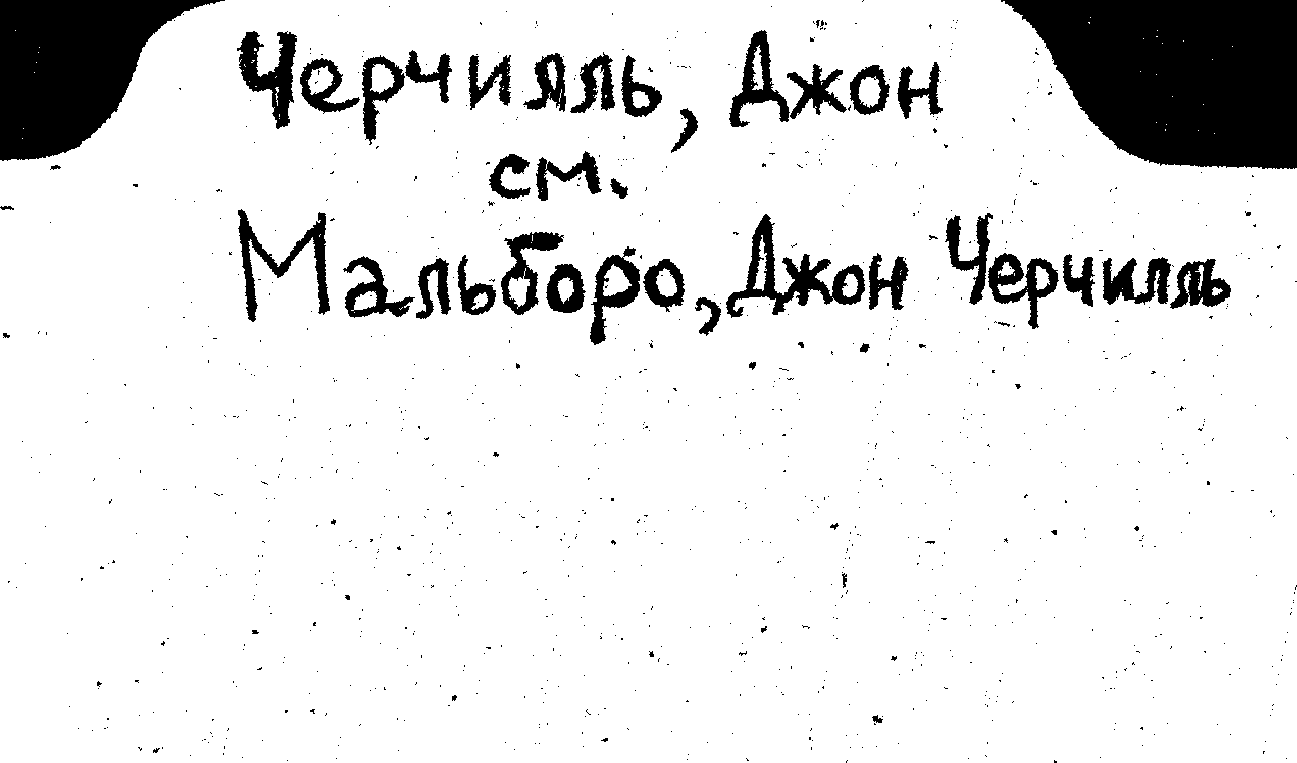 Черчилль, Джон
см.
Мальборо, Джон Черчилль